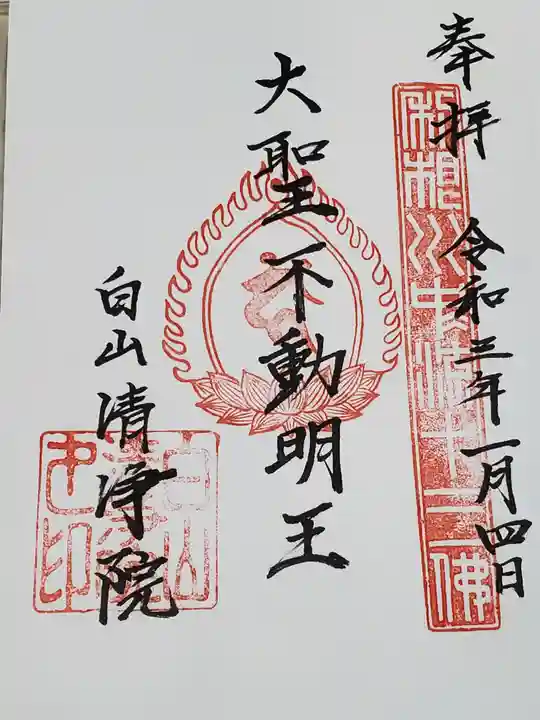 奉拝 令和三年一月四日
大聖不動明王
白山清浄院